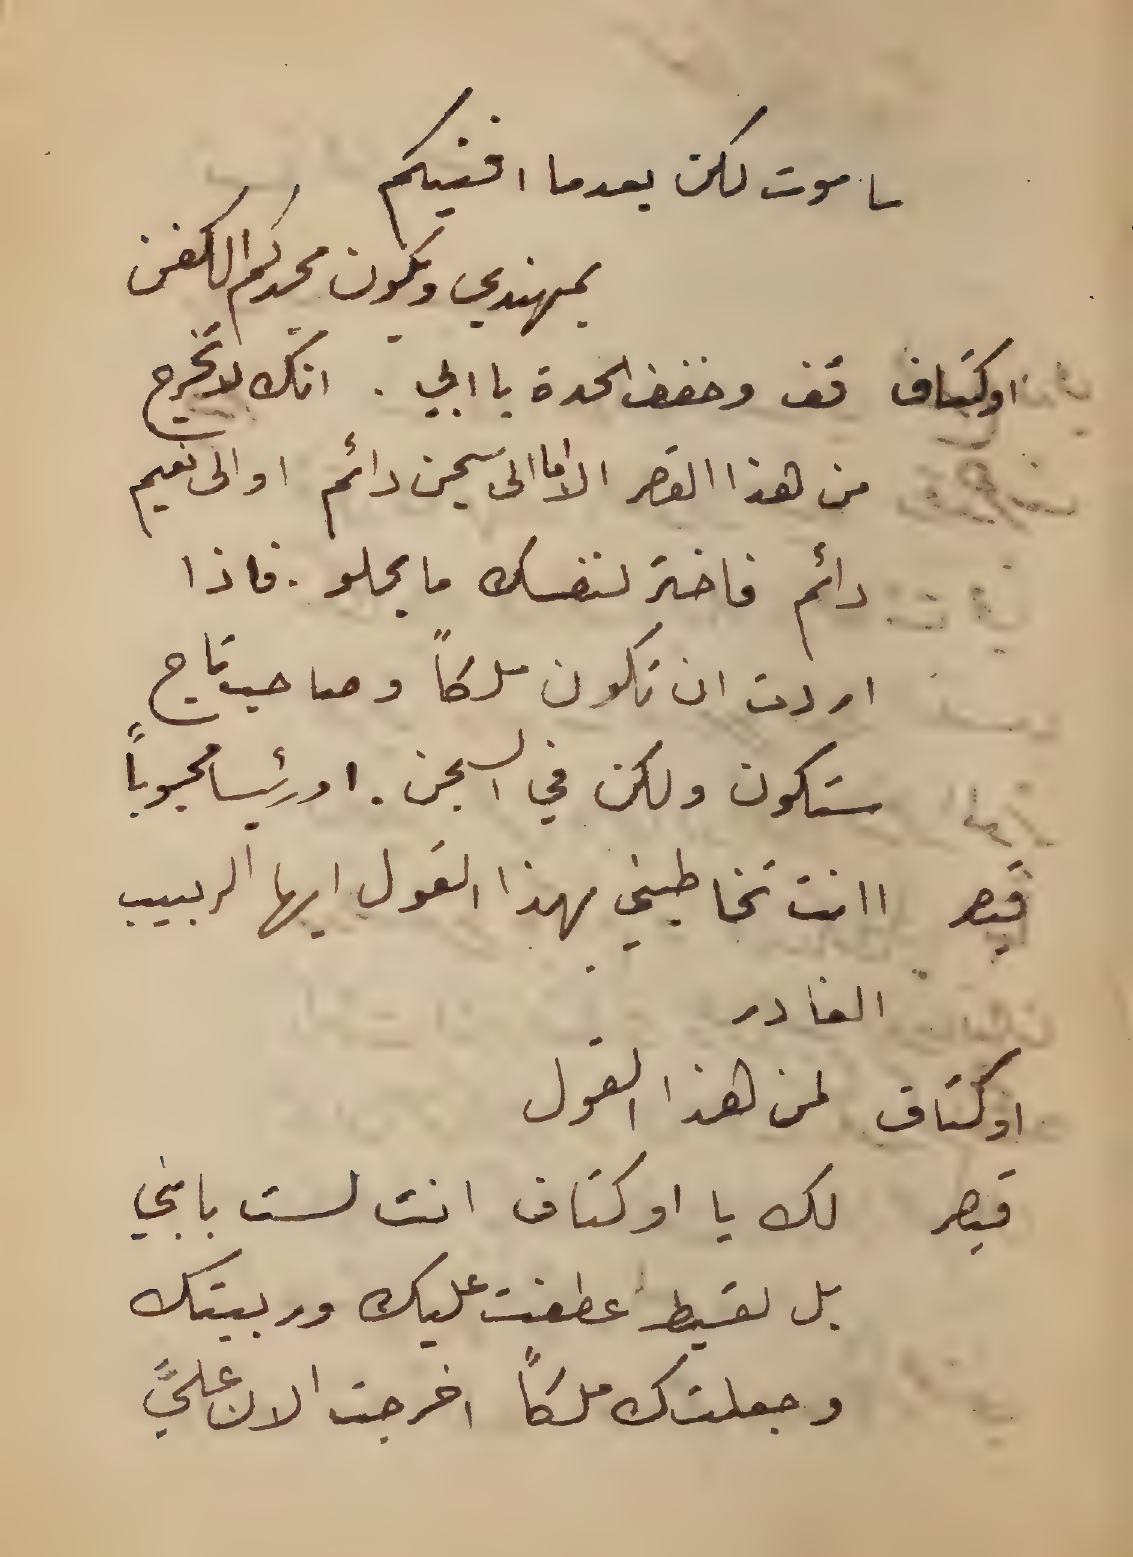 ساموت لكن بعدما افنيكم
بمهندي ويكون مجدكم الكفن
اوكتاف قف وخفف الحدة يا ابي . انك لا تخرج
من هذا القصر الا اما الى سجن دائم او الى نعيم
دائم فاختر لنفسك ما يحلو . فاذا
اردت ان تكون ملكاً وصاحب تاج
ستكون ولكن في السجن . او رئيسا محبوباً
قيصر اانت تخاطبني بهذا القول ايها الربيب
الغادر
اوكتاف لمن هذا القول
قيصر لك يا اوكتاف انت لست بابني
بل لقيط عطفت عليك وربيتك
وجعلتك ملكاً اخرجت الان عليَّ